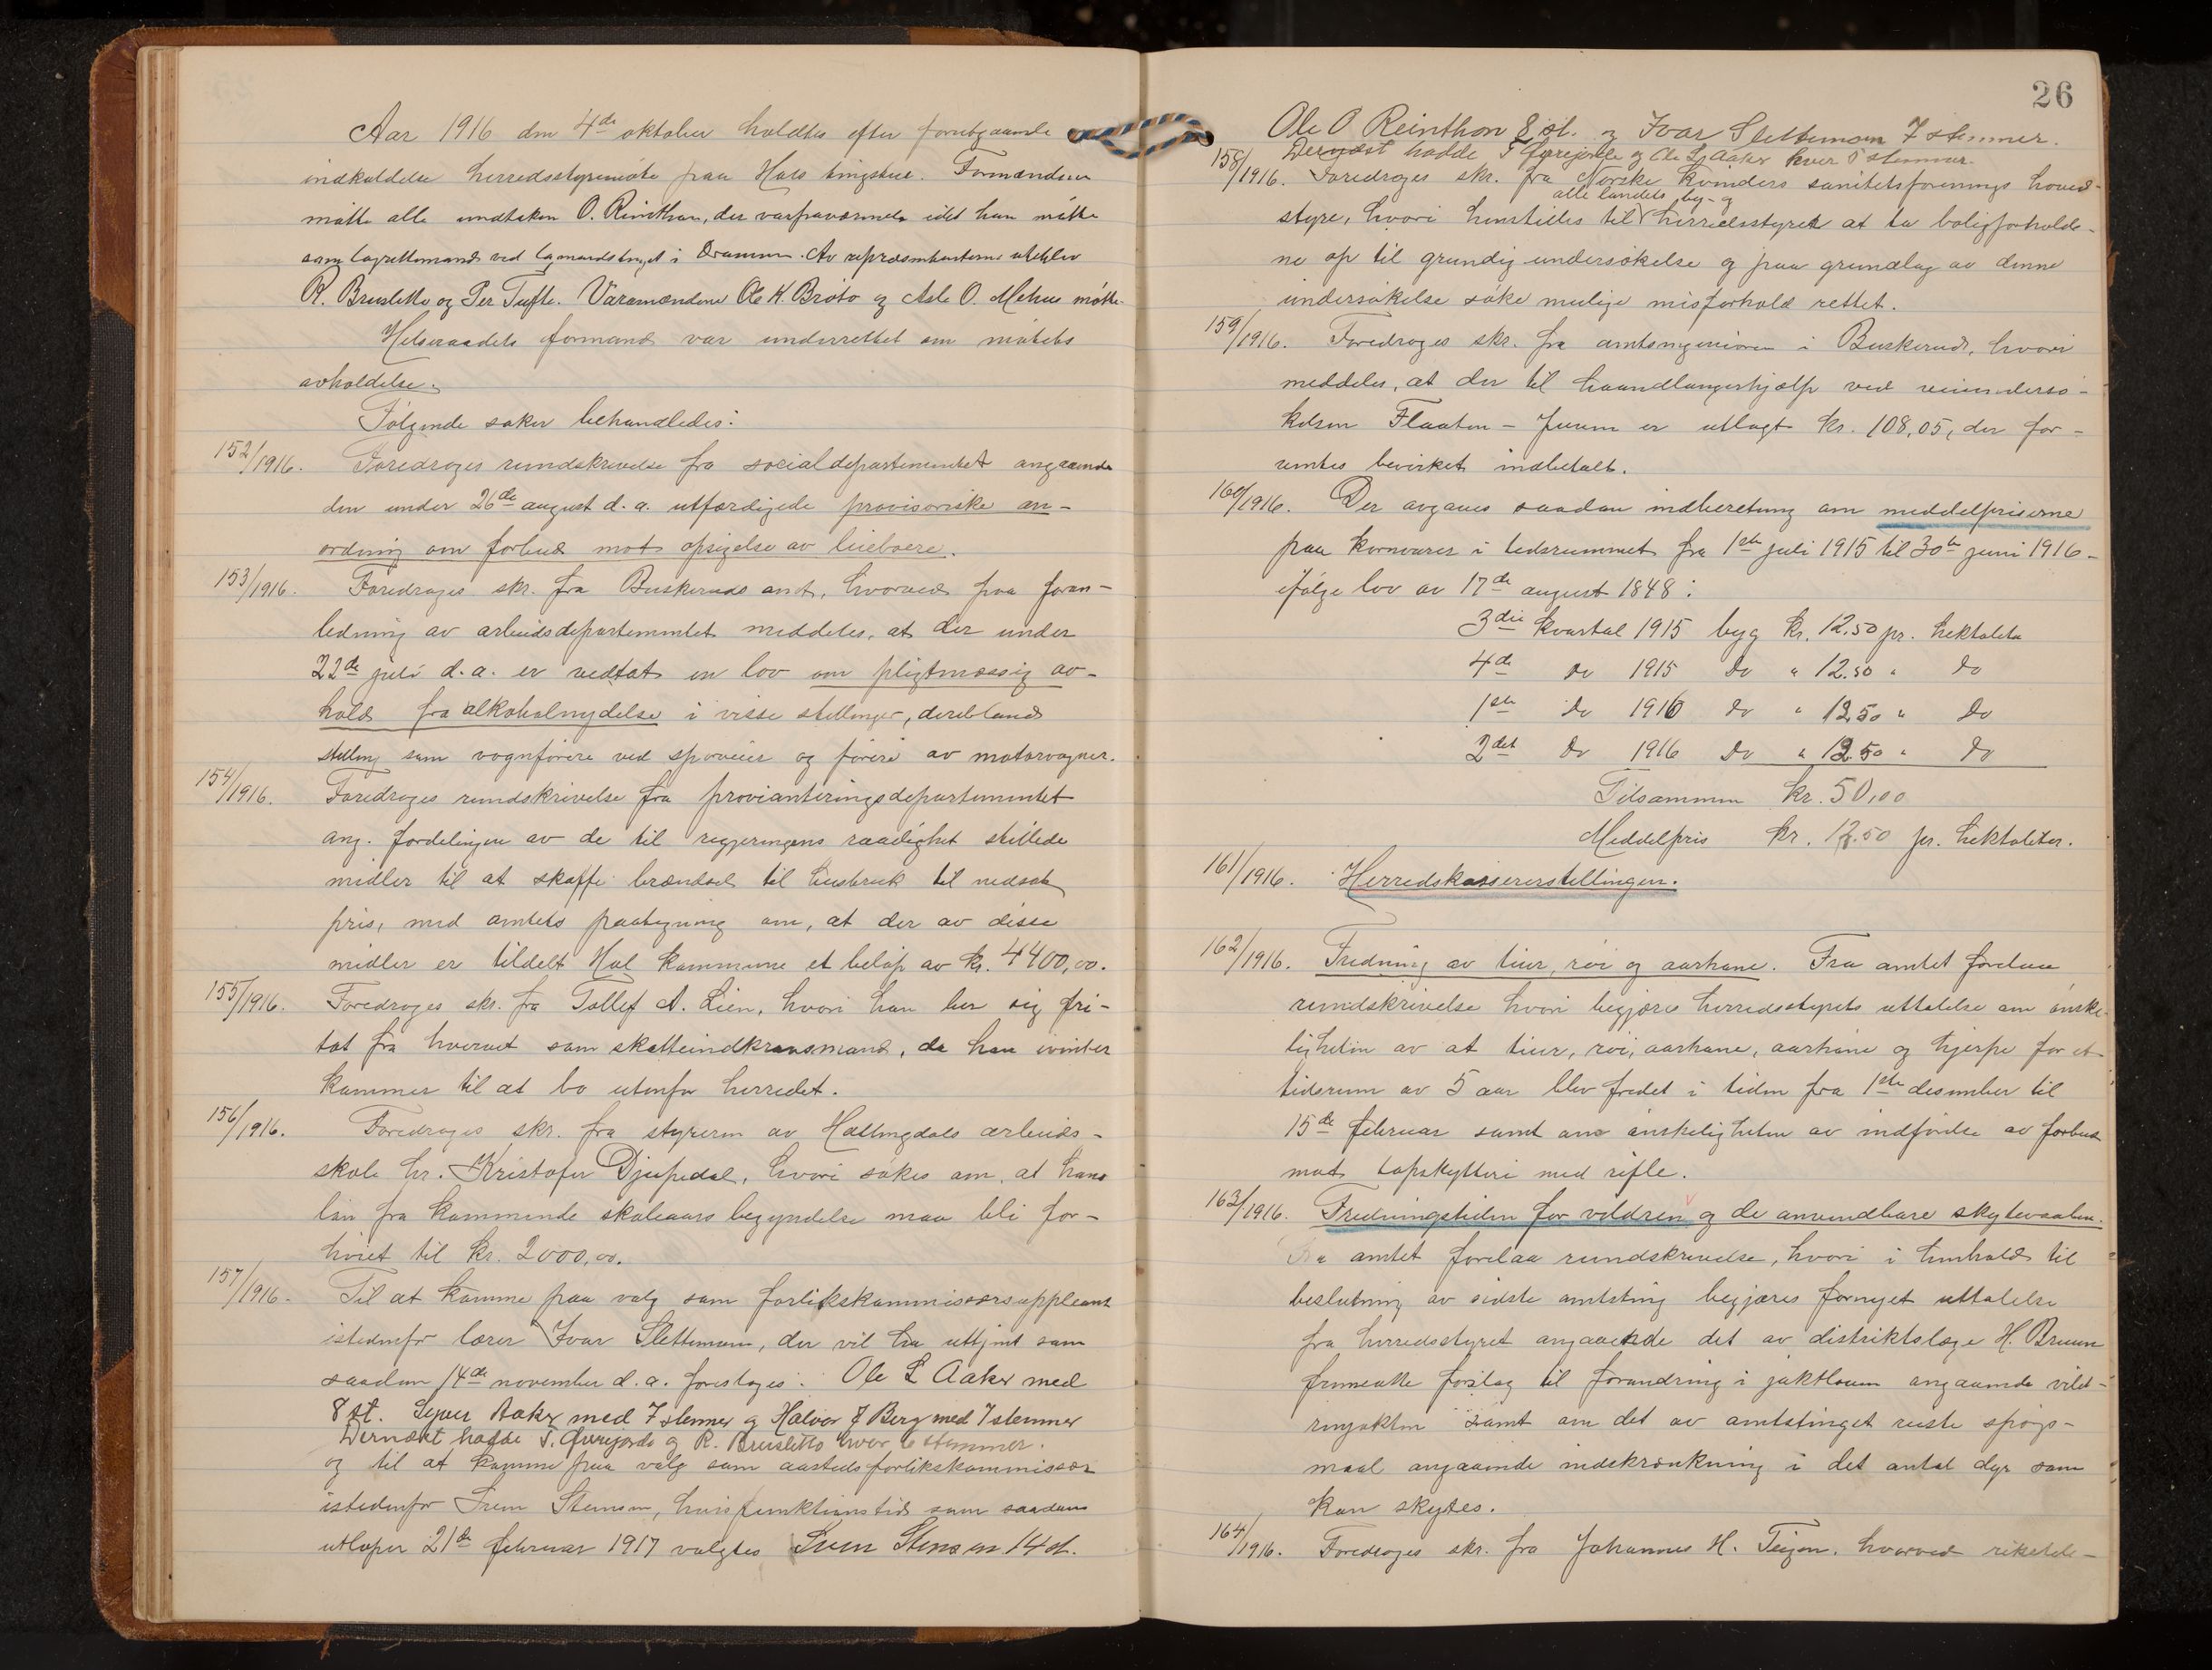 Aar 1916 den 4de oktober holdtes efter forutgaaende
indkaldelse herredsstyremöte paa Hols tingstue. Formænden
mötte alle undtaken O. Reinthon, der var fraværende idet han mötte
som lagrettemand ved lagmandstinget i Drammen. Av repræsentanterne uteblev
R. Brusletto og Per Tufte. Varamændene Ole K. Bröto og Asle O. Mehus mötte.
Helseraadets formand var underrettet om mötets
avholdelse.
Fölgende saker behandledes:
152/1916. Foredroges rundskrivelse fra socialdepartementet angaaende
den under 26de august d.a. utfærdigede provisoriske an-
ordning om forbud mot opsigelse av leieboere.
153/1916. Foredroges skr. fra Buskeruds amt, hvorved paa foran-
ledning av arbeidsdepartementet meddeles, at der under
22de juli d.a. er vedtat en lov om pligtmæssig av-
hold fra alkoholnydelse i visse stillinger, deriblandt
stilling som vognförere ved sporveier og förere av motorvogner.
154/1916. Foredroges rundskrivelse fra provianteringsdepartementet
ang. fordelingen av de til regjeringens raadighet stillede
midler til at skaffe brændsel til husbruk til nedsat
pris, med amtets paategning om, at der av disse
midler er tildelt Hol kommune et belöp av kr. 4400,00.
155/1916. Foredroges skr. fra Tollef A. Lien, hvori han ber sig fri-
tat fra hvervet som skatteindkrævsmand, da han ivinter
kommer til at bo utenfor herredet.
156/1916. Foredroges skr. fra styreren av Hallingdals arbeids-
skole hr. Kristofer Djupedal, hvori sökes om, at hans
lön fra kommende skoleaars begyndelse maa bli for-
höiet til kr. 2000,00.
157/1916. Til at komme paa valg som forlikskommissærsuppleant
istedenfor lærer Ivar Slettemoen, der vil ha uttjent som
saadan 14de november d.a. foresloges: Ole L Aaker med
8 st. Syver Aaker med 7 stemmer og Halvor J Berg med 7 stemmer
Dernæst hadde T. Gurejorde og R. Brusletto hver 6 stemmer.
og til at komme paa valg som aastedsforlikskommissær
istedenfor Svein Stensen, hvis funktionstid som saadan
utlöper 21de februar 1917 valgtes Svein Stensen 14 st.
26
Ole O Reinthon 8 st. og Ivar Slettemoen 7 stemmer.
Dernæst hadde T Gurejorde og Ole L Aaker hver 5 stemmer.
158/1916. Foredroges skr. fra Norske kvinders sanitetsforenings hoved-
alle landets by- og
styre, hvori henstilles til herredsstyret at ta boligforholde-
ne op til grundig undersökelse og paa grundlag av denne
undersökelse söke mulige misforhold rettet.
159/1916. Foredroges skr. fra amtsingeniören i Buskerud, hvori
meddeles, at der til haandlangerhjælp ved veiundersö-
kelsen Flaaten – er utlagt kr. 108,05, der for-
ventes bevirket indbetalt.
160/1916. Der avgaves saadan indberetning om meddelpriserne
paa kornvarer i tidsrummet fra 1ste juli 1915 til 30te juni 1916 –
ifölge lov av 17de august 1848:
3die kvartal 1915 byg kr. 12.50 pr. hektoliter
4de do 1915 do " 12.50 " do
1ste do 1916 do " 12.50 " do
2det do 1916 do " 12.50 " do
Tilsammen kr. 50,00
Meddelpris kr. 12.50 pr. hektoliter.
161/1916. Herredskassererstillingen.
162/1916. Fredning av tiur, röi og aarhane. Fra amtet forelaa
rundskrivelse hvori begjæres herredsstyrets uttalelse om önske-
ligheten av at tiur, röi, aarhane, aarhöne og hjerpe for et
tidsrum av 5 aar blev fredet i tiden fra 1ste desember til
15de februar samt om önskeligheten av indförelse av forbud
mot topskytteri med rifle.
163/1916. Fredningstiden for vildren og de anvendbare skytevaaben.
Fra amtet forelaa rundskrivelse, hvori i henhold til
beslutning av sidste amtsting begjæres fornyet uttalelse
fra herredsstyret angaaende det av distriktslæge H. Bruun
fremsatte forslag til forandring i jaktloven angaaende vild-
renjakten samt om det av amtstinget reiste spörs-
maal angaaende indskrænkning i det antal dyr som
kan skytes.
164/1916. Foredroges skr. fra Johannes H. Teigen, hvorved rikstele-